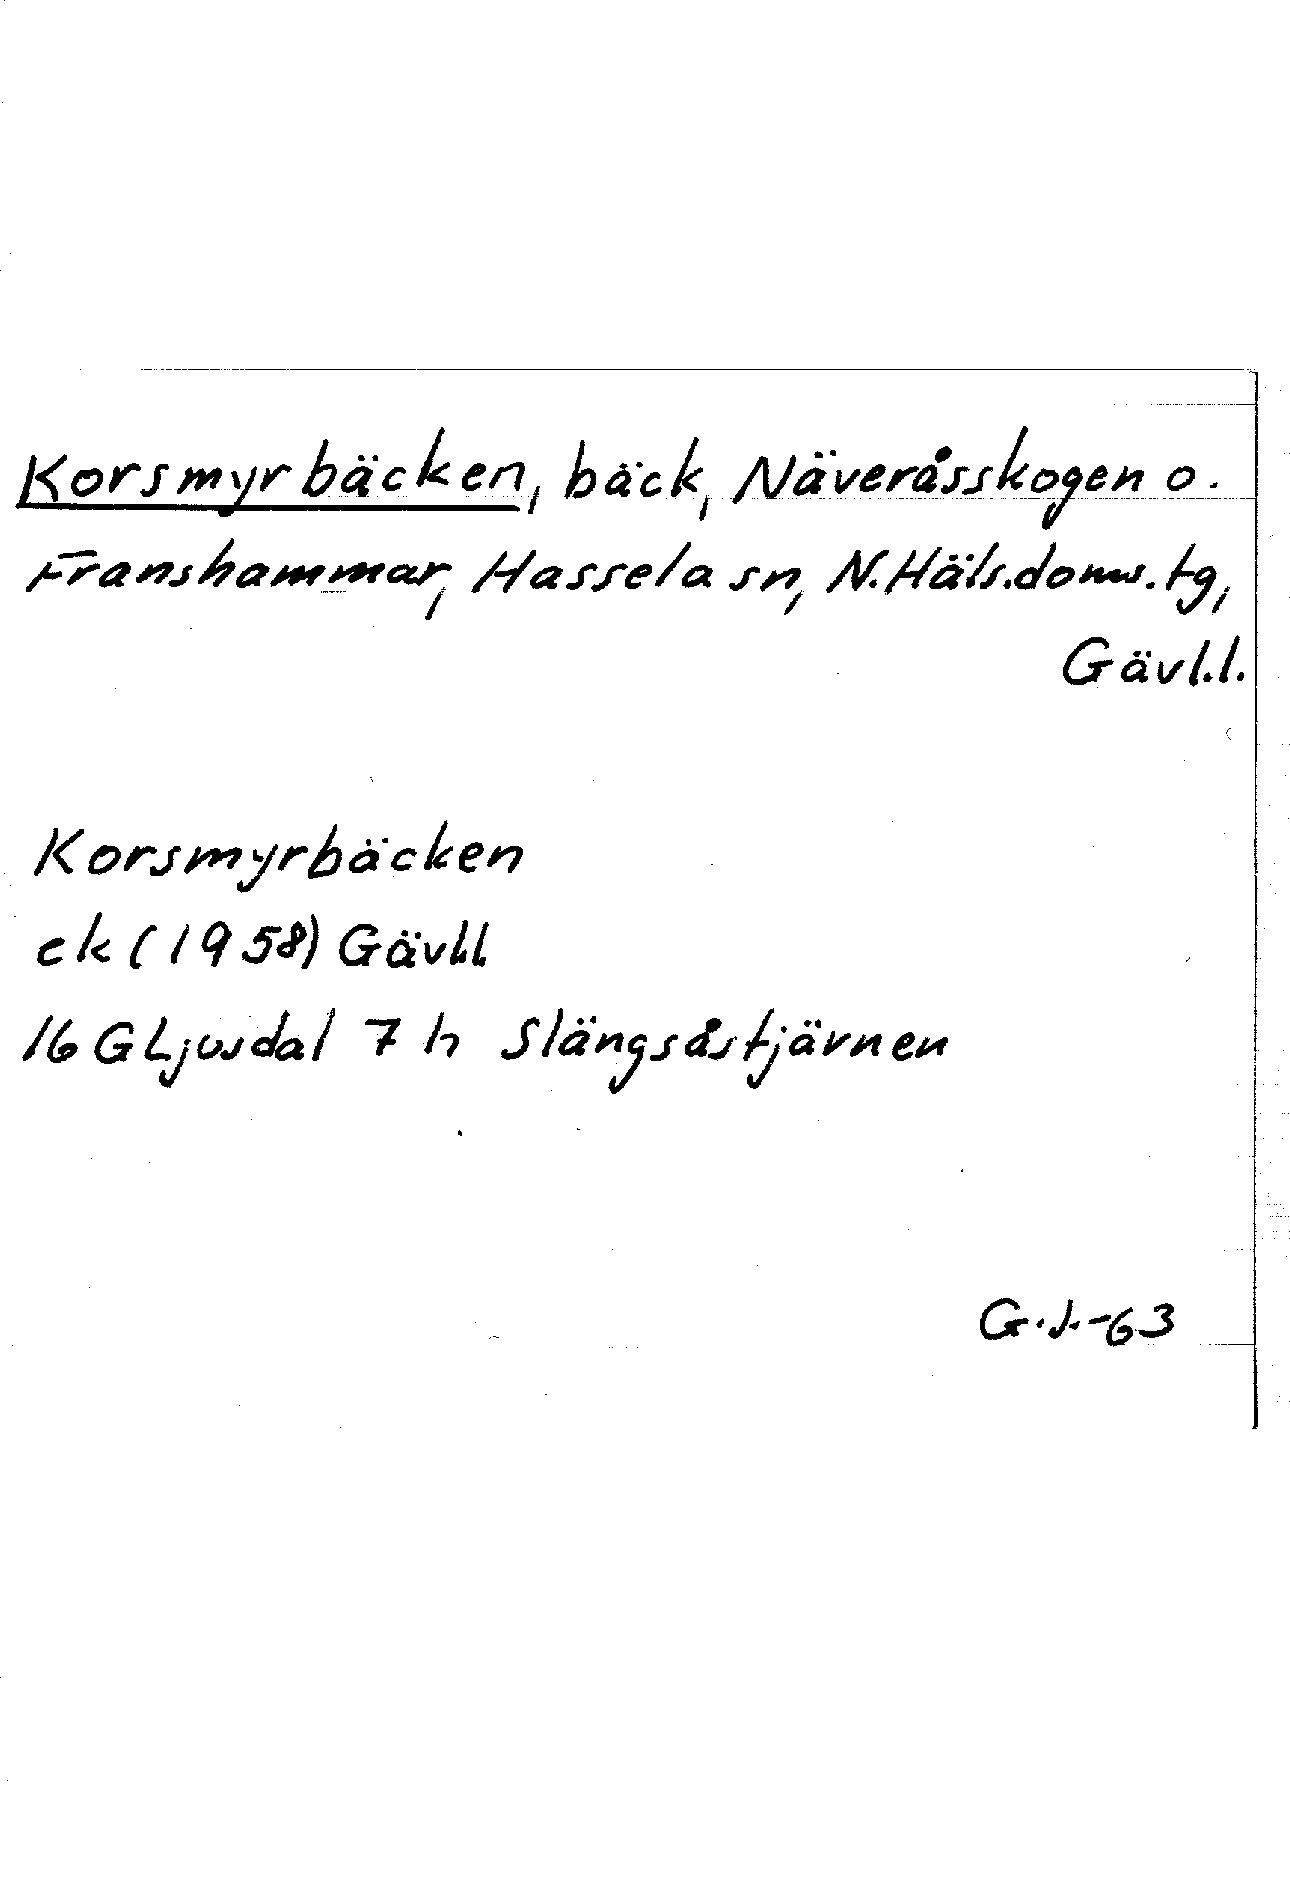 Korsmyrbäcken, bäck, Näveråsskogen o.
Franshammar, Hassela sn, N.Häls.doms.tg,
Gävl.l.
Korsmyrbäcken
ek (1958) Gävl.l.
16 G Ljusdal 7 h Slängsåstjärnen
G.J.-63